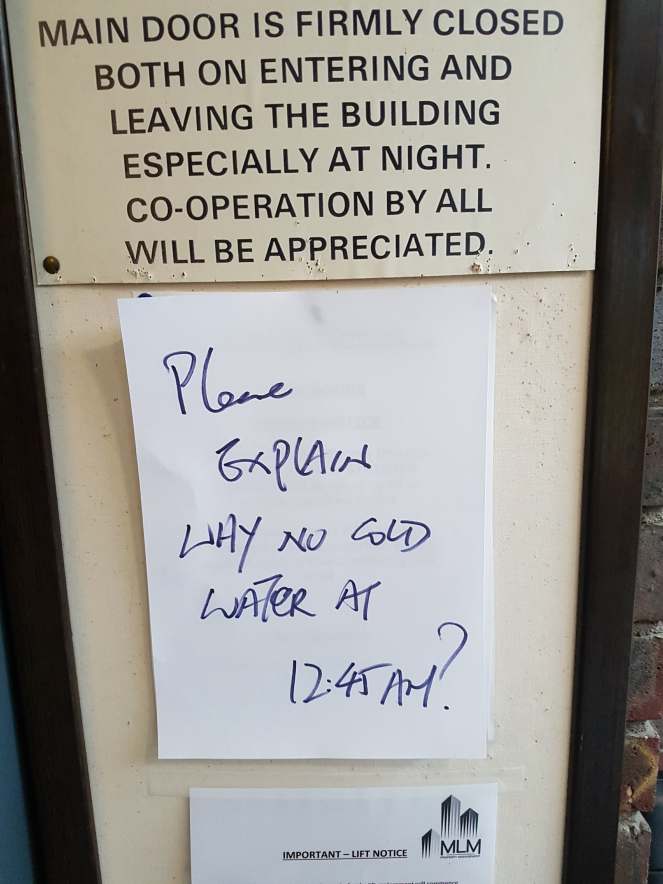 MAIN DOOR IS FIRMLY CLOSED
BOTH ON ENTERING AND
LEAVING THE BUILDING
ESPECIALLY AT NIGHT.
CO-OPERATION BY ALL
WILL BE APPRECIATED.
Please
EXPLAIN
WHY NO COLD
WATER AT
12:45 AM?
MLM
IMPORTANT – LIFT NOTICE